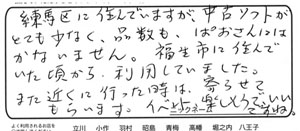 練馬区に住んでいますが、中古ソフトが
とても少なく、品数も、ぱおさんには
かないません。福生市に住んで
いた頃から、利用していました。
また近くに行った時は、寄らせて
もらいます。イベントつるべ楽しくていいですね。
よく利用されるお店を
立川 小作 羽村 昭島 青梅 高幡 堀之内 八王子